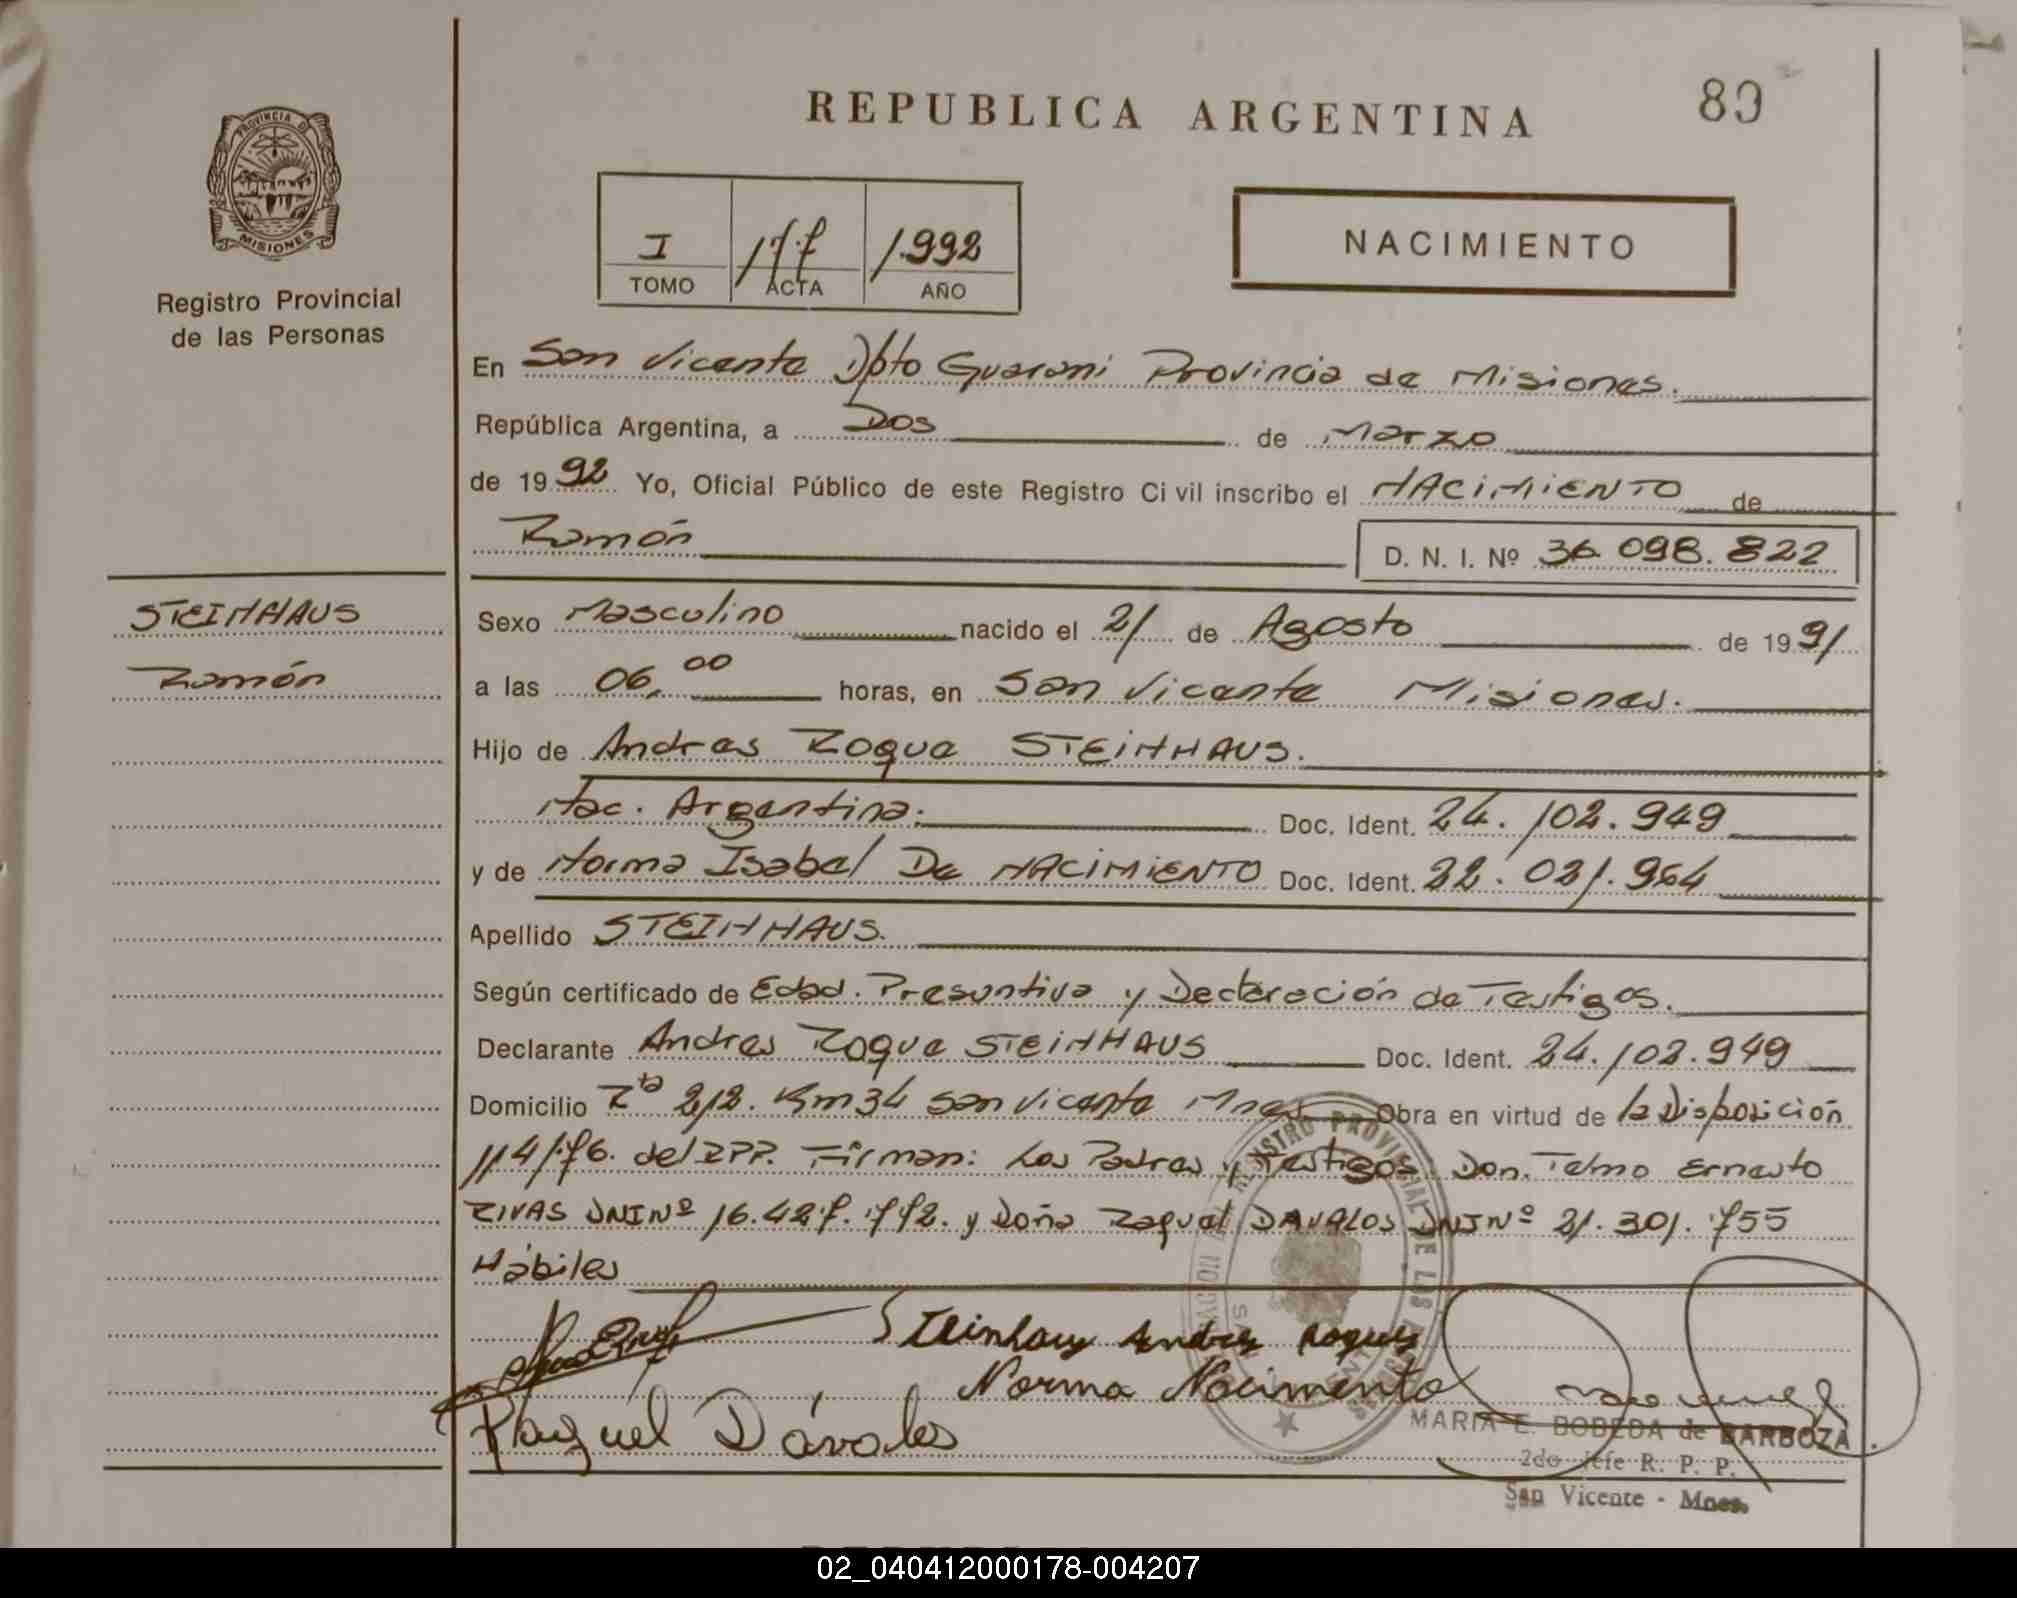 REPUBLICA ARGENTINA
80
PROVINCIA DE
MISIONES
Registro Provincial
de las Personas
I 177 1.992
TOMO ACTA AÑO
NACIMIENTO
En San Vicente Dpto Guarani Provincia de Misiones.
República Argentina, a Dos de Marzo
de 1992 Yo, Oficial Público de este Registro Ci vil inscribo el NACIMIENTO de
Ramón D. N. I. Nº 36.098.822
STEINHAUS
Ramón
Sexo Masculino nacido el 21 de Agosto de 1991
a las 06,00 horas, en San Vicente Misiones.
Hijo de Andres Roque STEINHAUS.
Nac. Argentina. Doc. Ident. 24.102.949
y de Norma Isabel De NACIMIENTO Doc. Ident. 22.021.964
Apellido STEINHAUS.
Según certificado de Edad. Presuntiva y Declaración de Testigos.
Declarante Andres Roque STEINHAUS Doc. Ident. 24.102.949
Domicilio Rta 212. Km 34 San Vicente Mnes Obra en virtud de la Disposición
114/76. del RPP. Firman: Los Padres y Testigos: Don. Telmo Ernesto
RIVAS DNI Nº 16.427.772. y Doña Raquel DAVALOS DNI Nº 21.301.755
Hábiles
Steinhaus Andres Roque
Norma Nacimento
Raquel Dávalos
MARIA E. BOBEDA de BARBOZA
2do Jefe R. P. P.
San Vicente - Mnes.
02_040412000178-004207